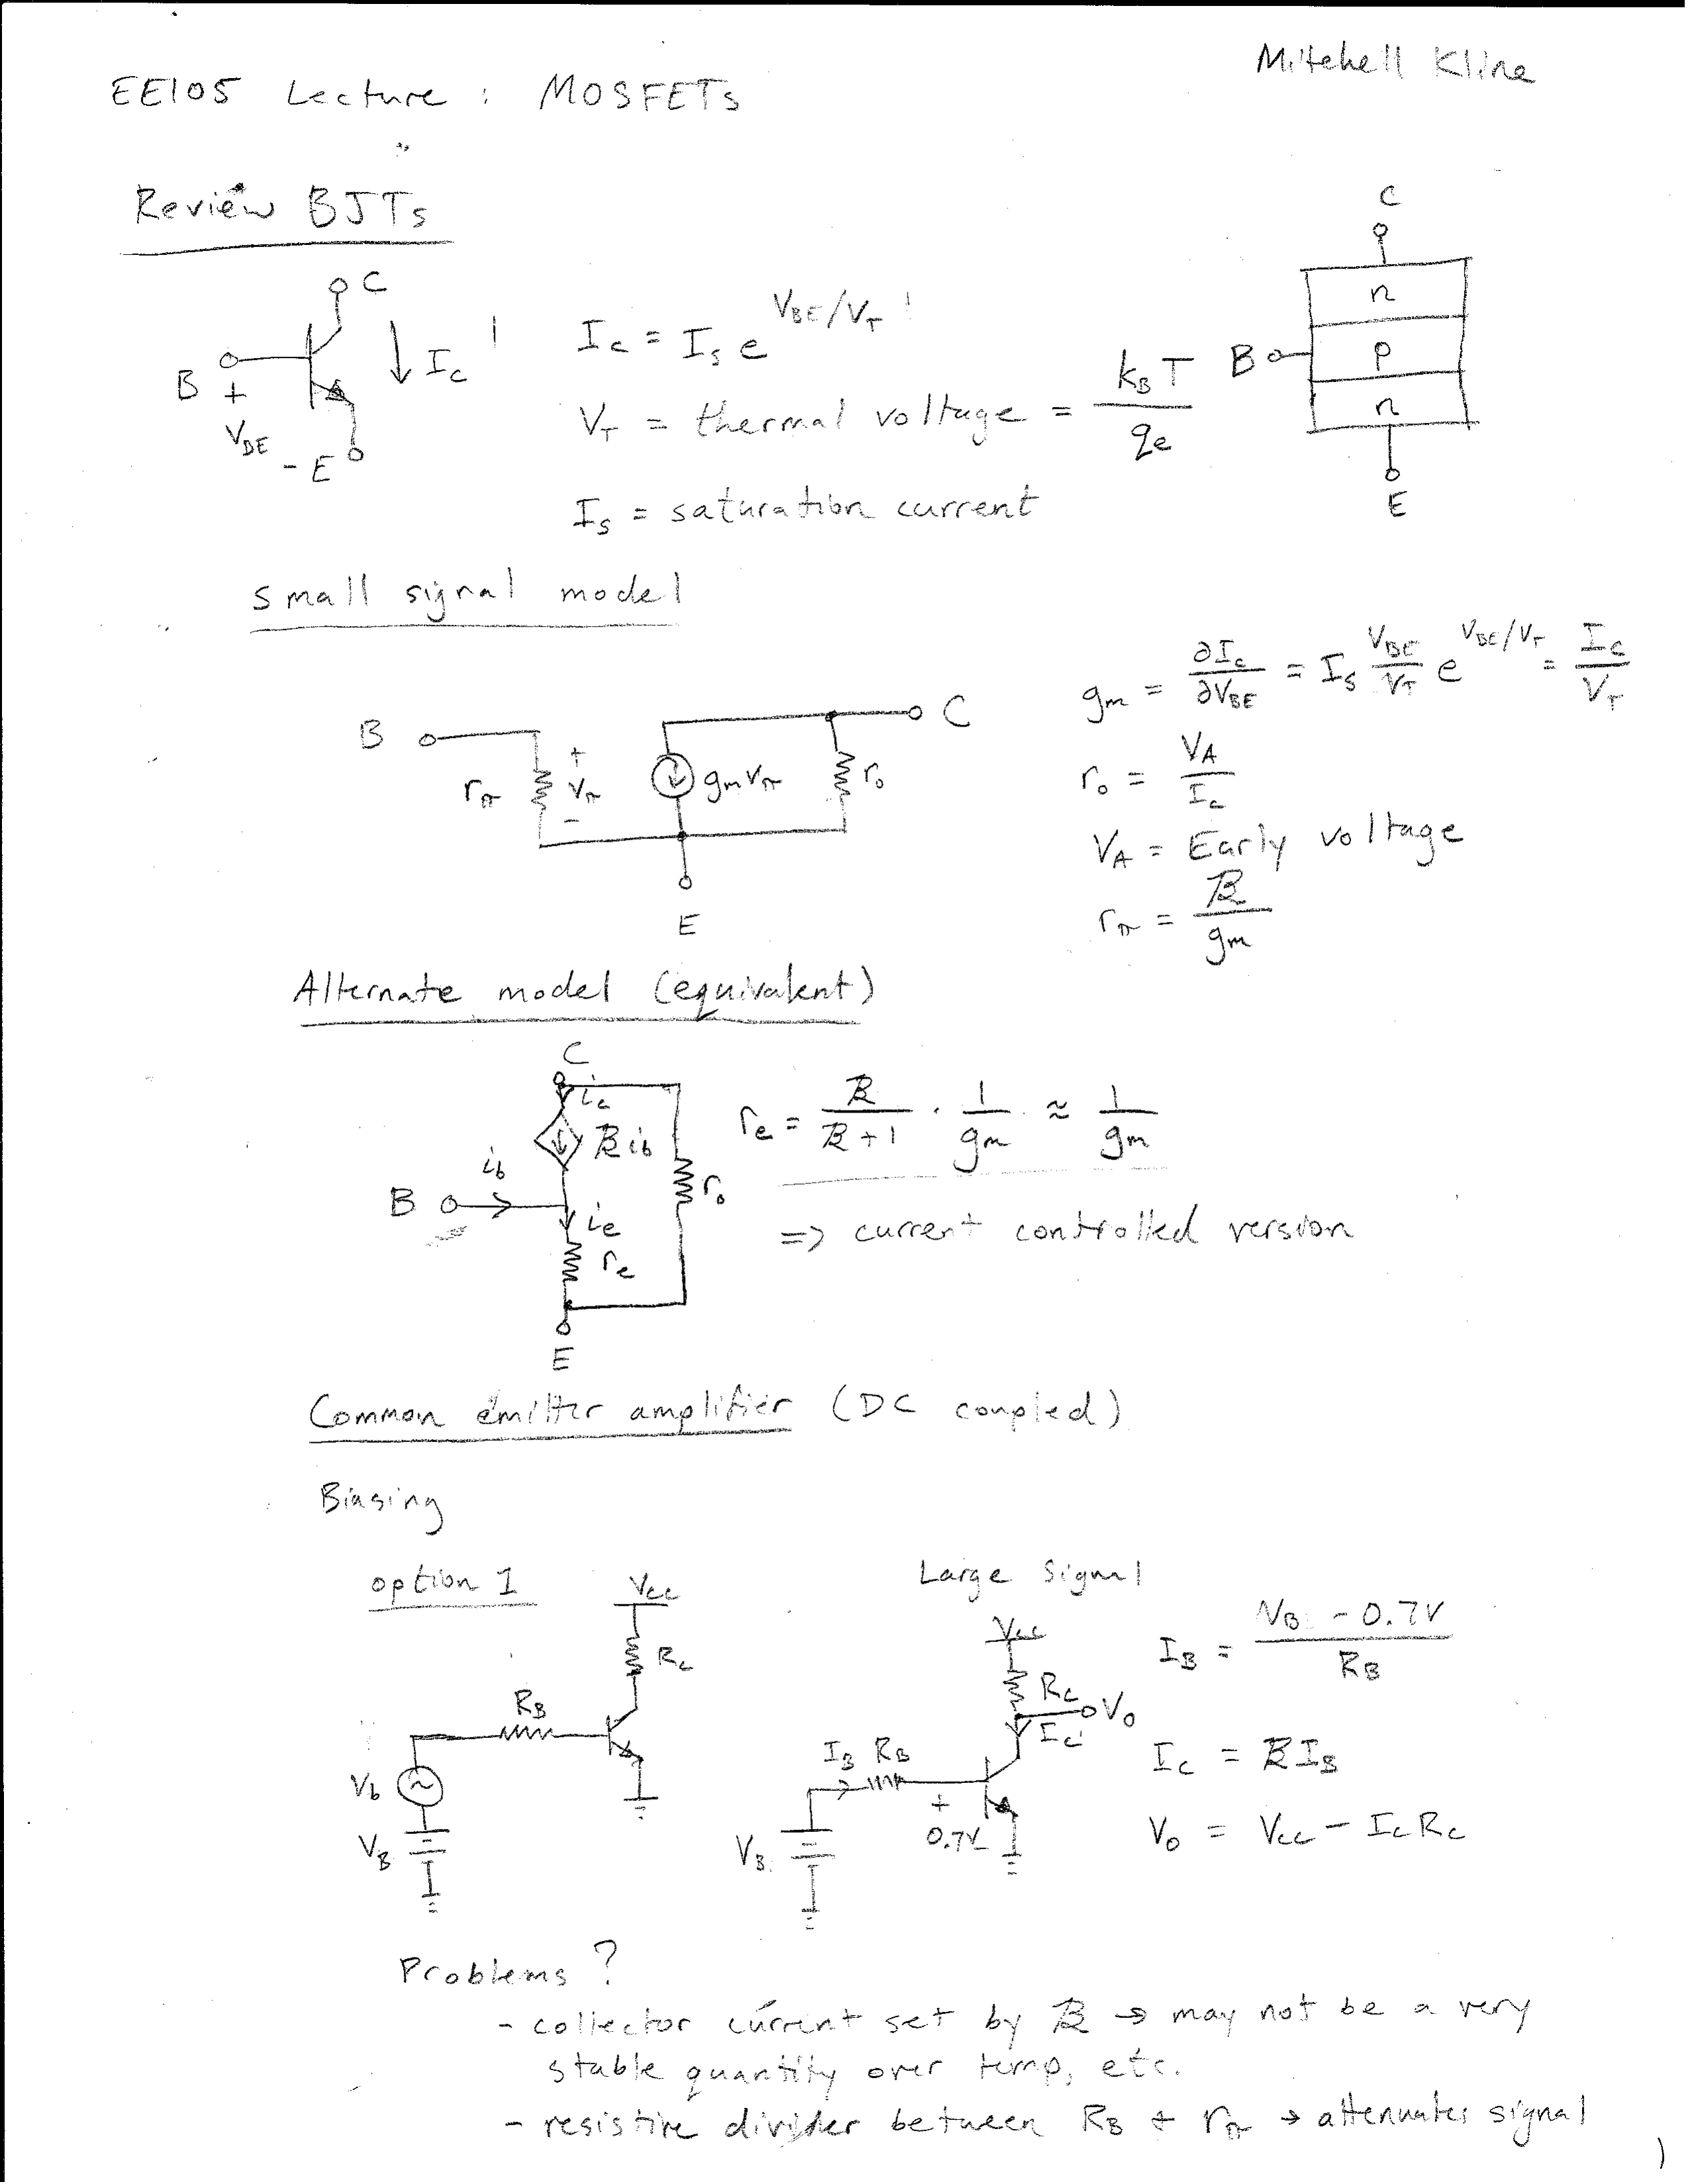 Mitchell Kline
EE105 Lecture : MOSFETs
Review BJTs
C
B
+
V_BE
- E
I_C
I_C = I_S e^(V_BE/V_T)
V_T = thermal voltage = k_B T / q_e
I_S = saturation current
C
n
B
p
n
E
small signal model
B
r_π
+
v_π
-
g_m v_π
r_o
C
E
g_m = ∂I_C/∂V_BE = I_S V_BE/V_T e^(V_BE/V_T) = I_C/V_T
r_o = V_A/I_C
V_A = Early voltage
r_π = β/g_m
Alternate model (equivalent)
C
i_c
β i_b
i_b
B
r_o
i_e
r_e
E
r_e = β/(β+1) · 1/g_m ≈ 1/g_m
=> current controlled version
Common emitter amplifier (DC coupled)
Biasing
option 1
V_CC
R_C
R_B
V_b
V_B
Large Signal
V_CC
R_C
V_O
I_C
I_B R_B
+
0.7V -
V_B
I_B = (V_B - 0.7V)/R_B
I_C = β I_B
V_O = V_CC - I_C R_C
Problems ?
- collector current set by β → may not be a very
stable quantity over temp, etc.
- resistive divider between R_B + r_π → attenuates signal
)